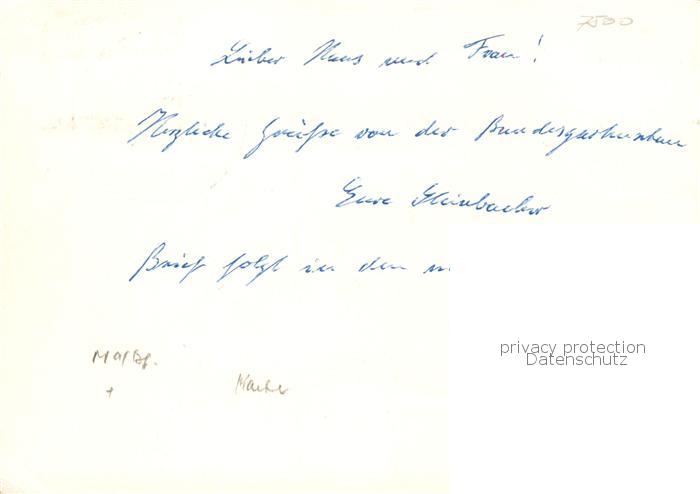 7500
Lieber Hans und Frau!
Herzliche Grüße von der Bundesgartenschau
Eure Steinbacher
Brief folgt in den
privacy protection
Datenschutz